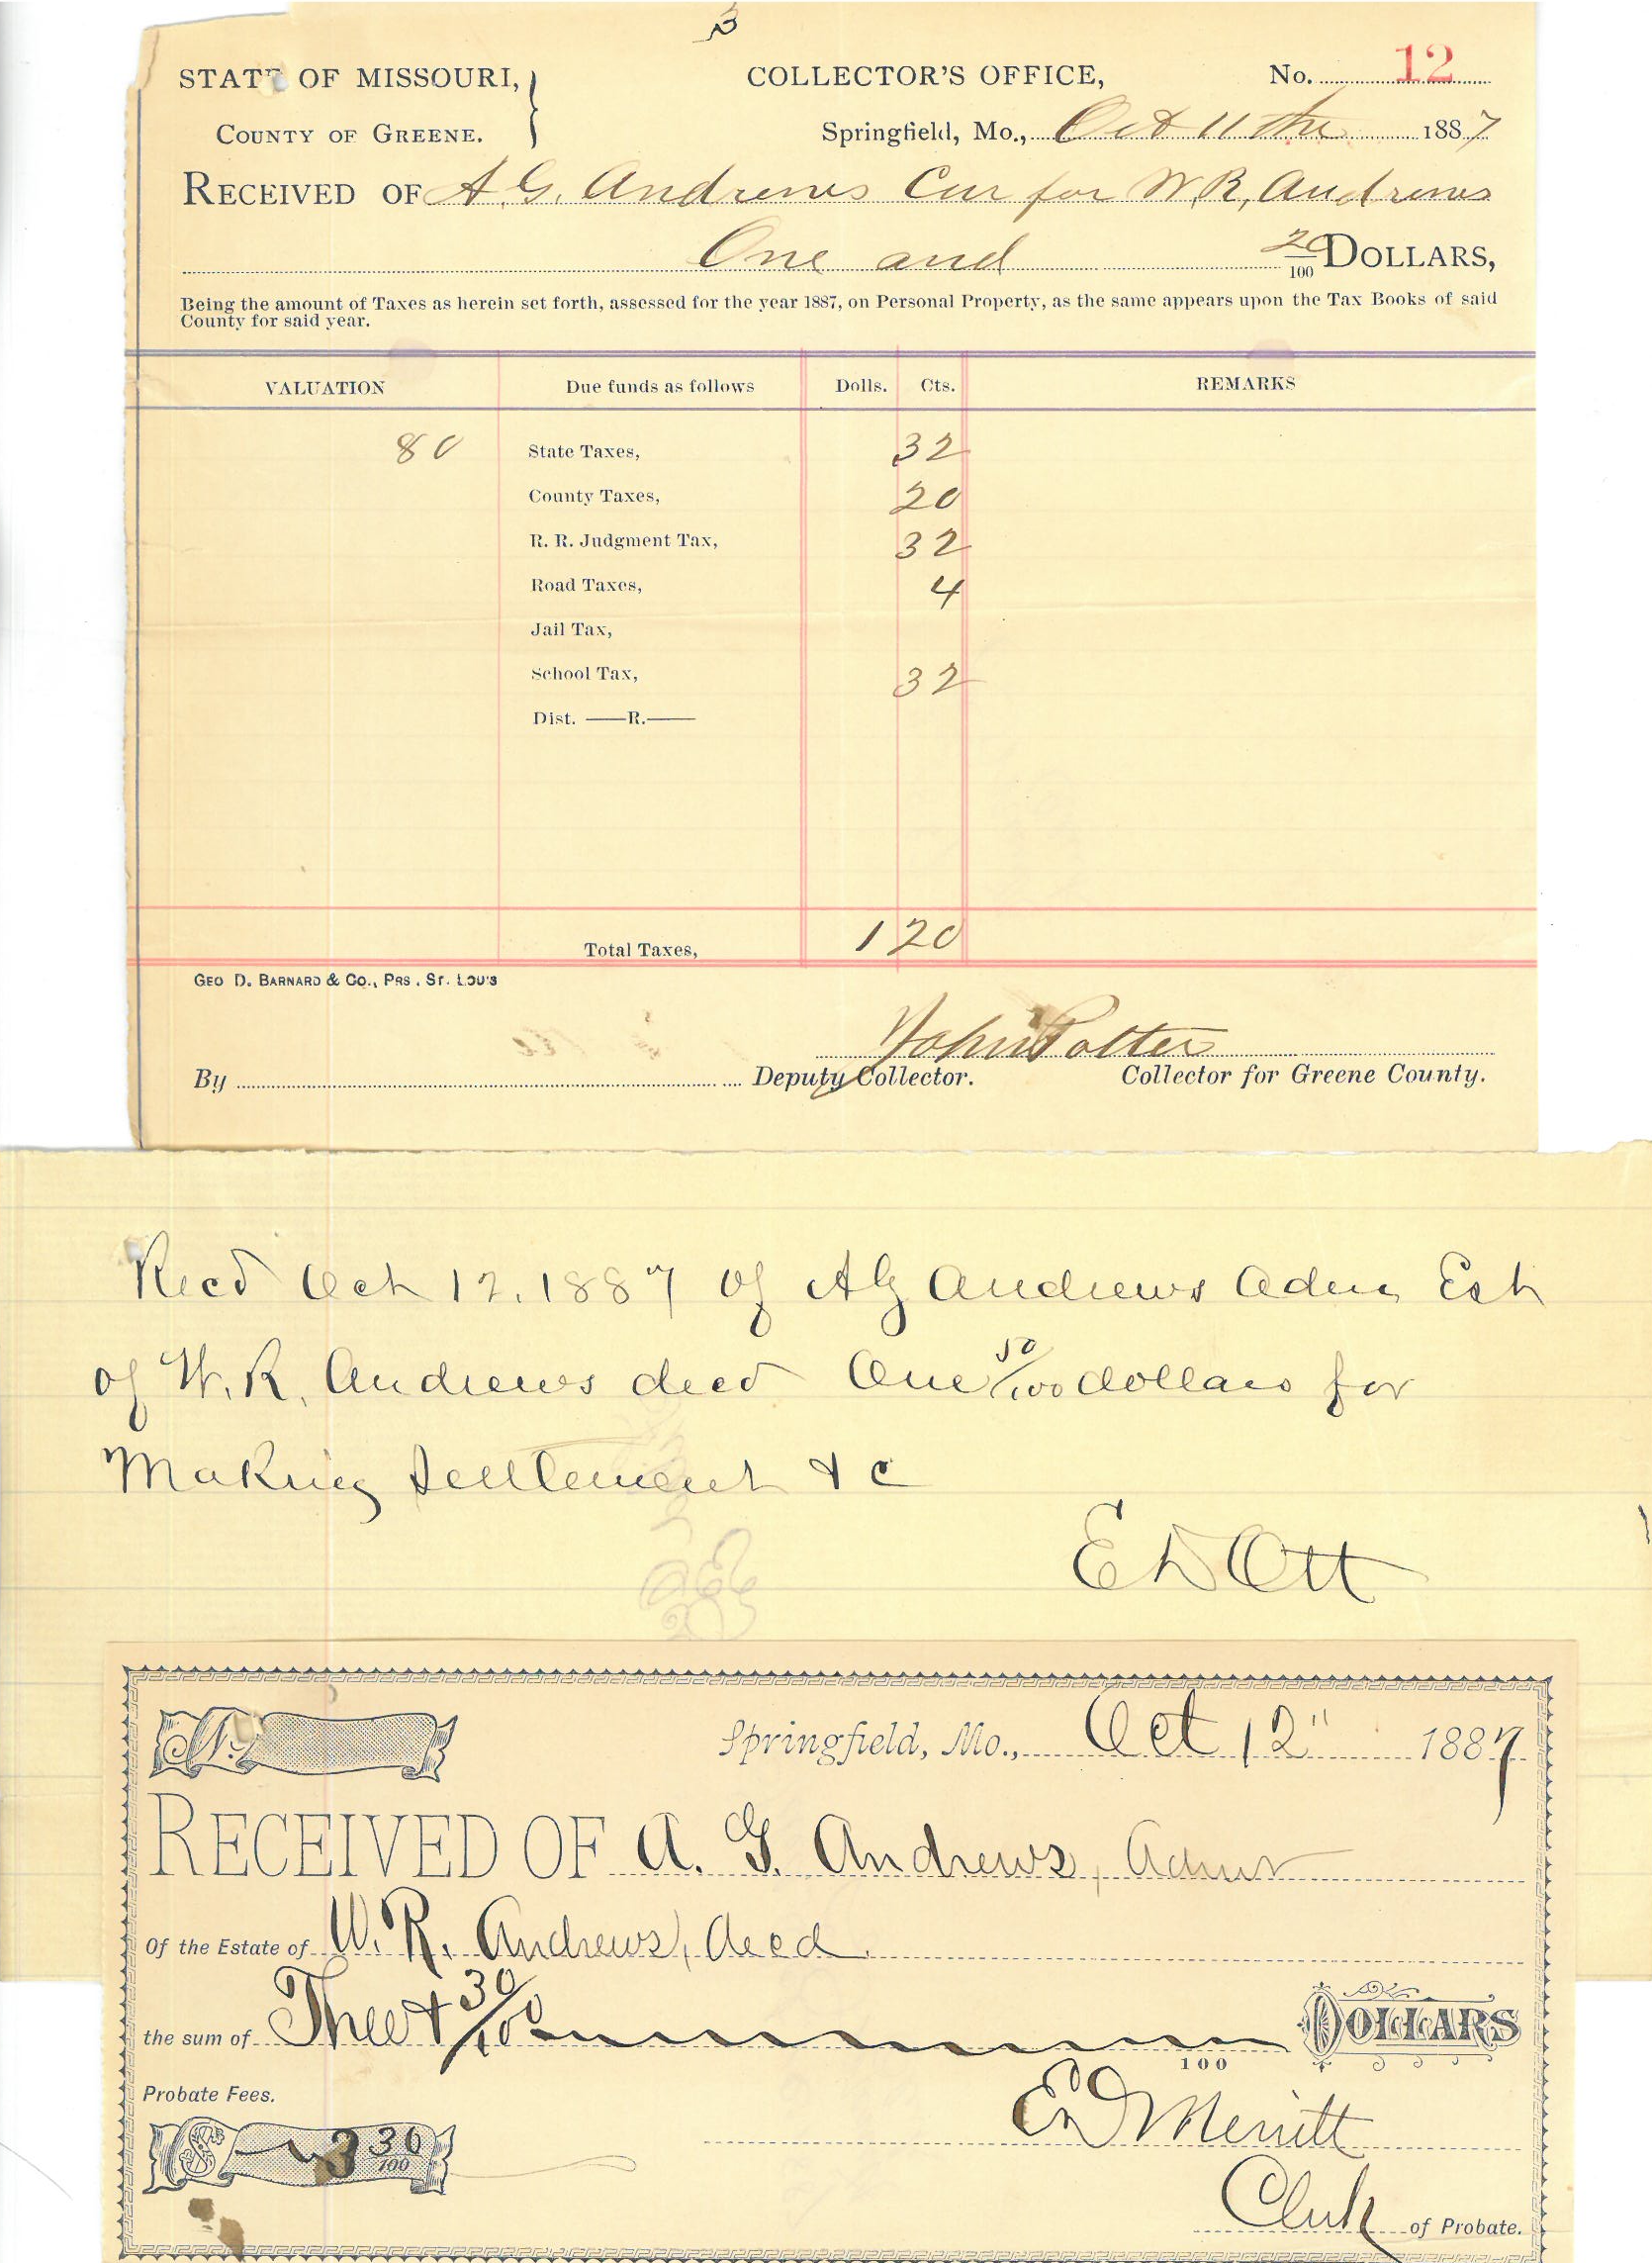 3
STATE OF MISSOURI, COLLECTOR'S OFFICE, No. 12
COUNTY OF GREENE. Springfield, Mo., Oct 11 the 1887
RECEIVED OF A. G. Andrews Cur for W. R. Andrews
One and 20/100 DOLLARS,
Being the amount of Taxes as herein set forth, assessed for the year 1887, on Personal Property, as the same appears upon the Tax Books of said
County for said year.
VALUATION Due funds as follows Dolls. Cts. REMARKS
80 State Taxes, 32
County Taxes, 20
R. R. Judgment Tax, 32
Road Taxes, 4
Jail Tax,
School Tax, 32
Dist. ——R.——
Total Taxes, 1 20
GEO D. BARNARD & CO., PRS. ST. LOUIS
John Potter
By Deputy Collector. Collector for Greene County.
Recd Oct 12, 1887 of A G Andrews Adm Est
of W. R. Andrews decd One 50/100 dollars for
Making Settlement & c
E D Ott
Springfield, Mo., Oct 12" 1887
RECEIVED OF A. G. Andrews, Admr
Of the Estate of W. R. Andrews, decd
the sum of Three & 30/100 DOLLARS
100
Probate Fees.
$ 3 30/100
E D Merritt
Clerk of Probate.